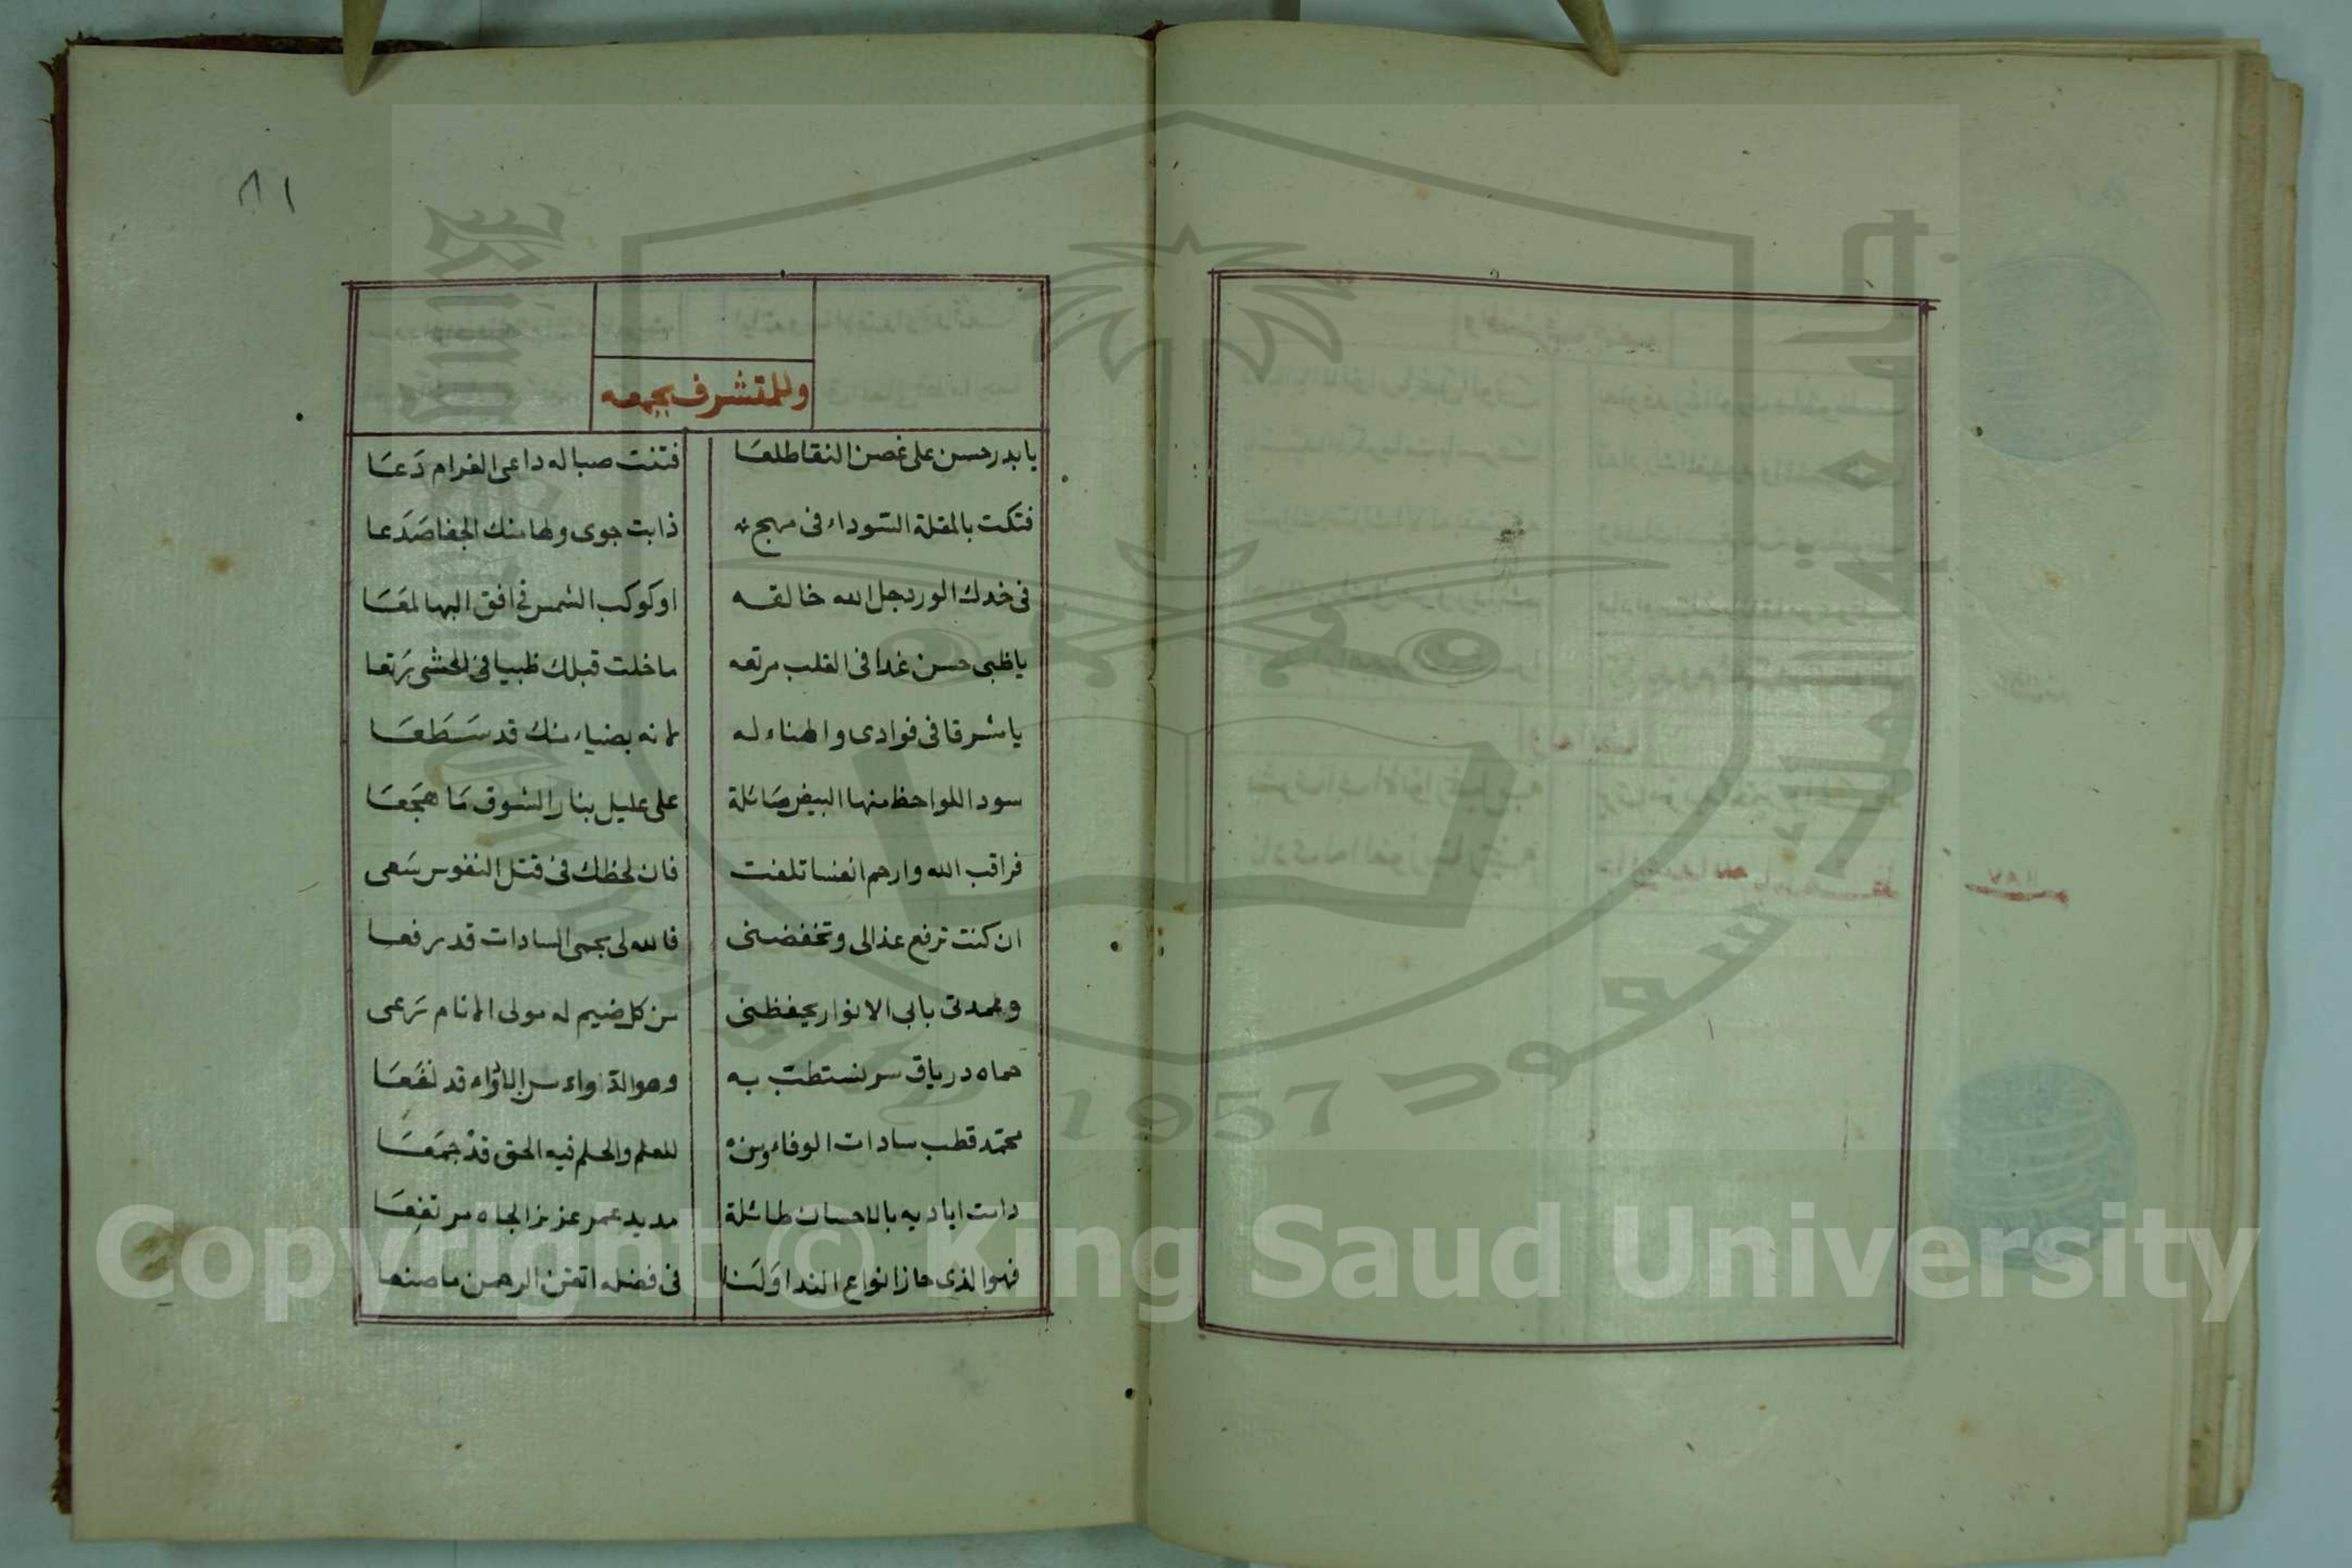 ٨١
وللمتشرف بجمعه
يا بدر حسن على غصن النقا طلعَا فتنت صبا له داعى الغرام دَعَا
فتكت بالمقلة السّوداء فى مهج ذابت جوى ولها منك الجفا صَدَعا
فى خدك الورد جل الله خالقه او كوكب الشمس فى افق البها لمعَا
يا ظبى حسن غدا فى القلب مرتعه ما خلت قبلك ظبيا فى الحشى رَتعا
يا مشرقا فى فوادى والهناء له لانه بضياء منك قد سَطَعَا
سود اللواحظ منها البيض صَائلة على عليل بنار الشوق مَا هجَعَا
فراقب الله وارحم انفسا تلفت فان لحظك فى قتل النفوس سَعى
ان كنت ترفع عذالى وتخفضنى فالله لى بحمى السادات قد رفعا
وعمدتى بابى الانوار يحفظنى من كل ضيم له مولى الانام رَعى
حماه درياق سر نستطب به وهو الدّواء من اللأواء قد نفَعَا
محمّد قطب سادات الوفاء ومن للعلم والحلم فيه الحق قدْ جمَعَا
دامت اياديه بالاحسان طائلة مديد عمر عزيز الجاه مرتفِعَا
فهو الذى حاز انواع الندا وَلنا فى فضله اتقن الرحمن ما صنعا
١١٨٧
1957
Copyright © King Saud University